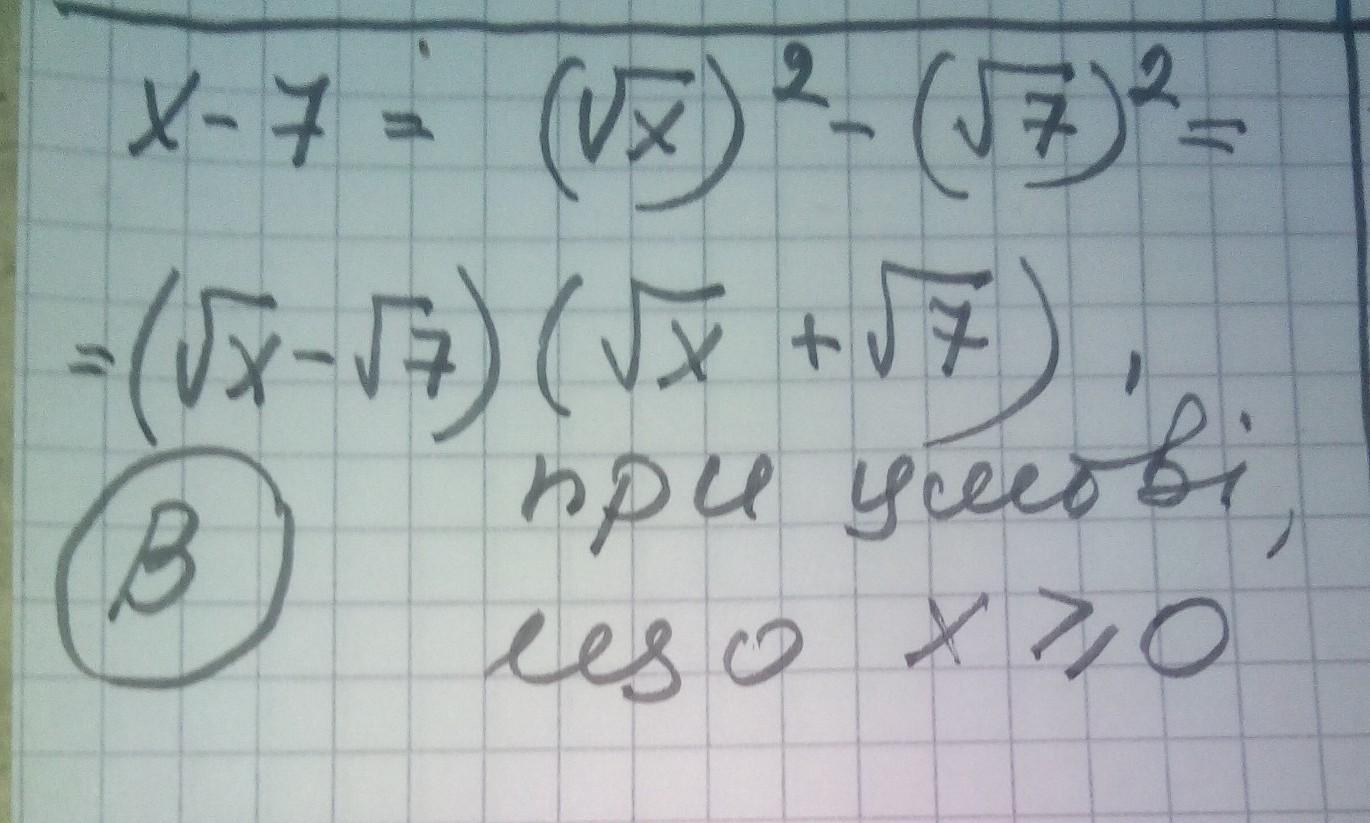 x - 7 = (√x)² - (√7)² =
= (√x - √7) (√x + √7),
при умові,
В
що x ⩾ 0